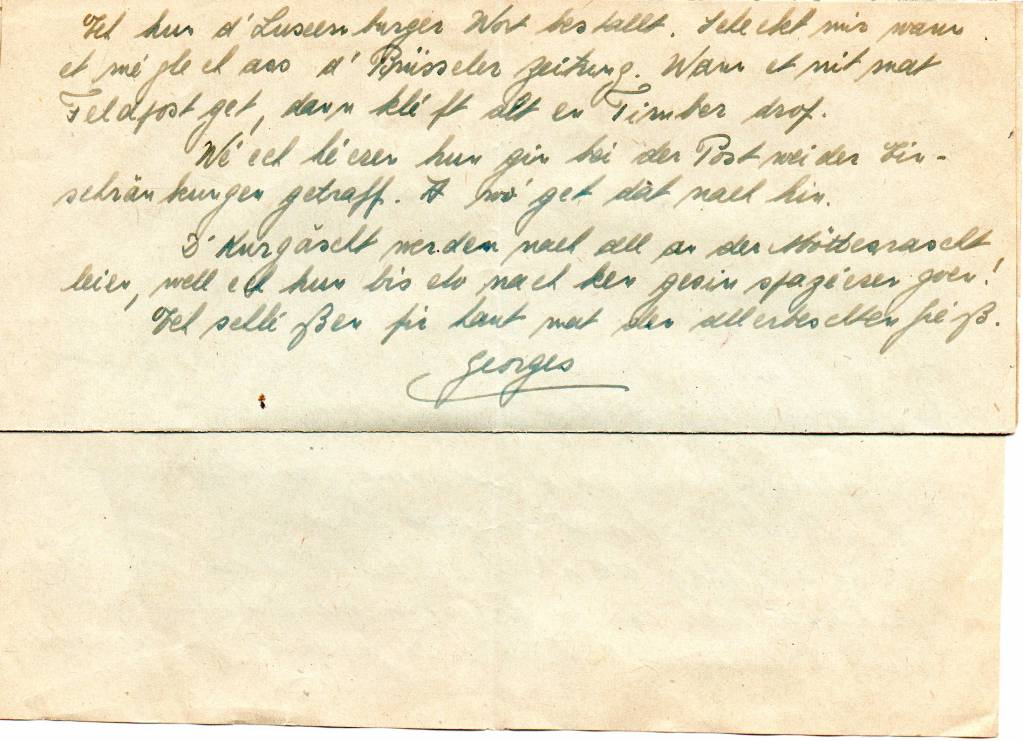 Ech hun d'Luxemburger Wort bestallt. Scheckt mir wann
et méglech ass d'Brüsseler Zeitung. Wann et nit mat
Feldpost get, dann kléft alt en Timber drop.
Wé ech héeren hun gin bei der Post weider Ein-
schränkungen getraff. A wó get dat nach hin.
D'Kurgäscht werden nach all an der Möttesrascht
leien, well ech hun bis elo nach ken gesin spazéeren goen!
Ech schléßen fir haut mat den allerbeschten Gréß.
Georges